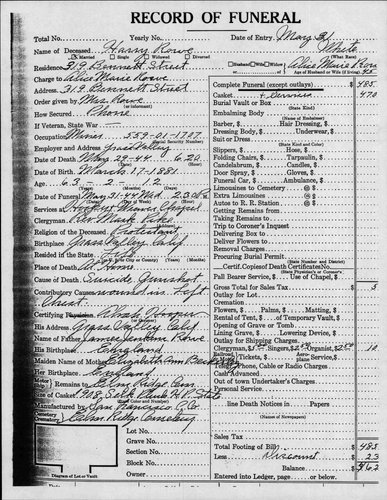 RECORD OF FUNERAL
Total No. Yearly No. Date of Entry May 31
Name of Deceased Harry Rowe White
Married Single Widowed Divorced (What Race)
Residence 319 Bennett Street Husband Wife of Alice Marie Rowe
Charge to Alice Marie Rowe Age of Husband or Wife (if living) 45
Address 319 Bennett Street
Order given by Mrs. Rowe
How Secured Phone
If Veteran, State War
Occupation Miner 559-01-1707
Employer and Address Grass Valley
Date of Death May 29-44 6:20
Date of Birth March 17-1881
Age 63 2 12
Date of Funeral May 31-44 Wed 2:30 P
Services at Chapel
Clergyman Rev. Mark
Religion of the Deceased Protestant
Birthplace Grass Valley Calif
Resided in the State Life
Place of Death At Home
Cause of Death Suicide Gunshot
Contributory Causes wound in Left
Chest
Certifying Physician
His Address Grass Valley Calif
Name of Father James Rowe
His Birthplace England
Maiden Name of Mother Elizabeth Ann
Her Birthplace England
Remains to Elm Ridge Cem.
Size of Casket
Manufactured by San Francisco C. Co.
Cemetery Elm Ridge Cemetery
Lot No.
Grave No.
Section No.
Block No.
Owner
Diagram of Lot or Vault
Complete Funeral (except outlays) $ 485
Casket + Service 470
Burial Vault or Box
(State Kind)
Embalming Body
(Name of Embalmer)
Barber, $ Hair Dressing, $
Dressing Body, $ Underwear, $
Suit or Dress
(State Kind and Color)
Slippers, $ Hose, $
Folding Chairs, $ Tarpaulin, $
Candelabrum, $ Candles, $
Door Spray, $ Gloves, $
Funeral Car, $ Ambulance, $
Limousines to Cemetery @ $
Extra Limousines @ $
Autos to R. R. Station @ $
Getting Remains from
Taking Remains to
Trip to Coroner's Inquest
Delivering Box to
Deliver Flowers to
Removal Charges
Procuring Burial Permit
(State Number and District)
Certif. Copies of Death Certificates No.
(State Physician's or Coroner's)
Pall Bearer Service, $ Use of Chapel, $
Gross Total for Sales Tax $ 5
Outlay for Lot
Cremation
Flowers, $ Palms, $ Matting, $
Rental of Tent, $ of Temporary Vault, $
Opening of Grave or Tomb
Lining Grave, $ Lowering Device, $
Outlay for Shipping Charges
Clergyman, $ Singers, $ Organist, $ 10
Railroad Tickets, $ Aeroplane Service, $
Telephone, Cable or Radio Charges
Cash Advanced
Out of town Undertaker's Charges
Personal Service
line Death Notices in Papers
(Names of Newspapers)
Sales Tax
Total Footing of Bill $ 485
Less Discount $ 23
Balance $ 462
Entered into Ledger, page or below.